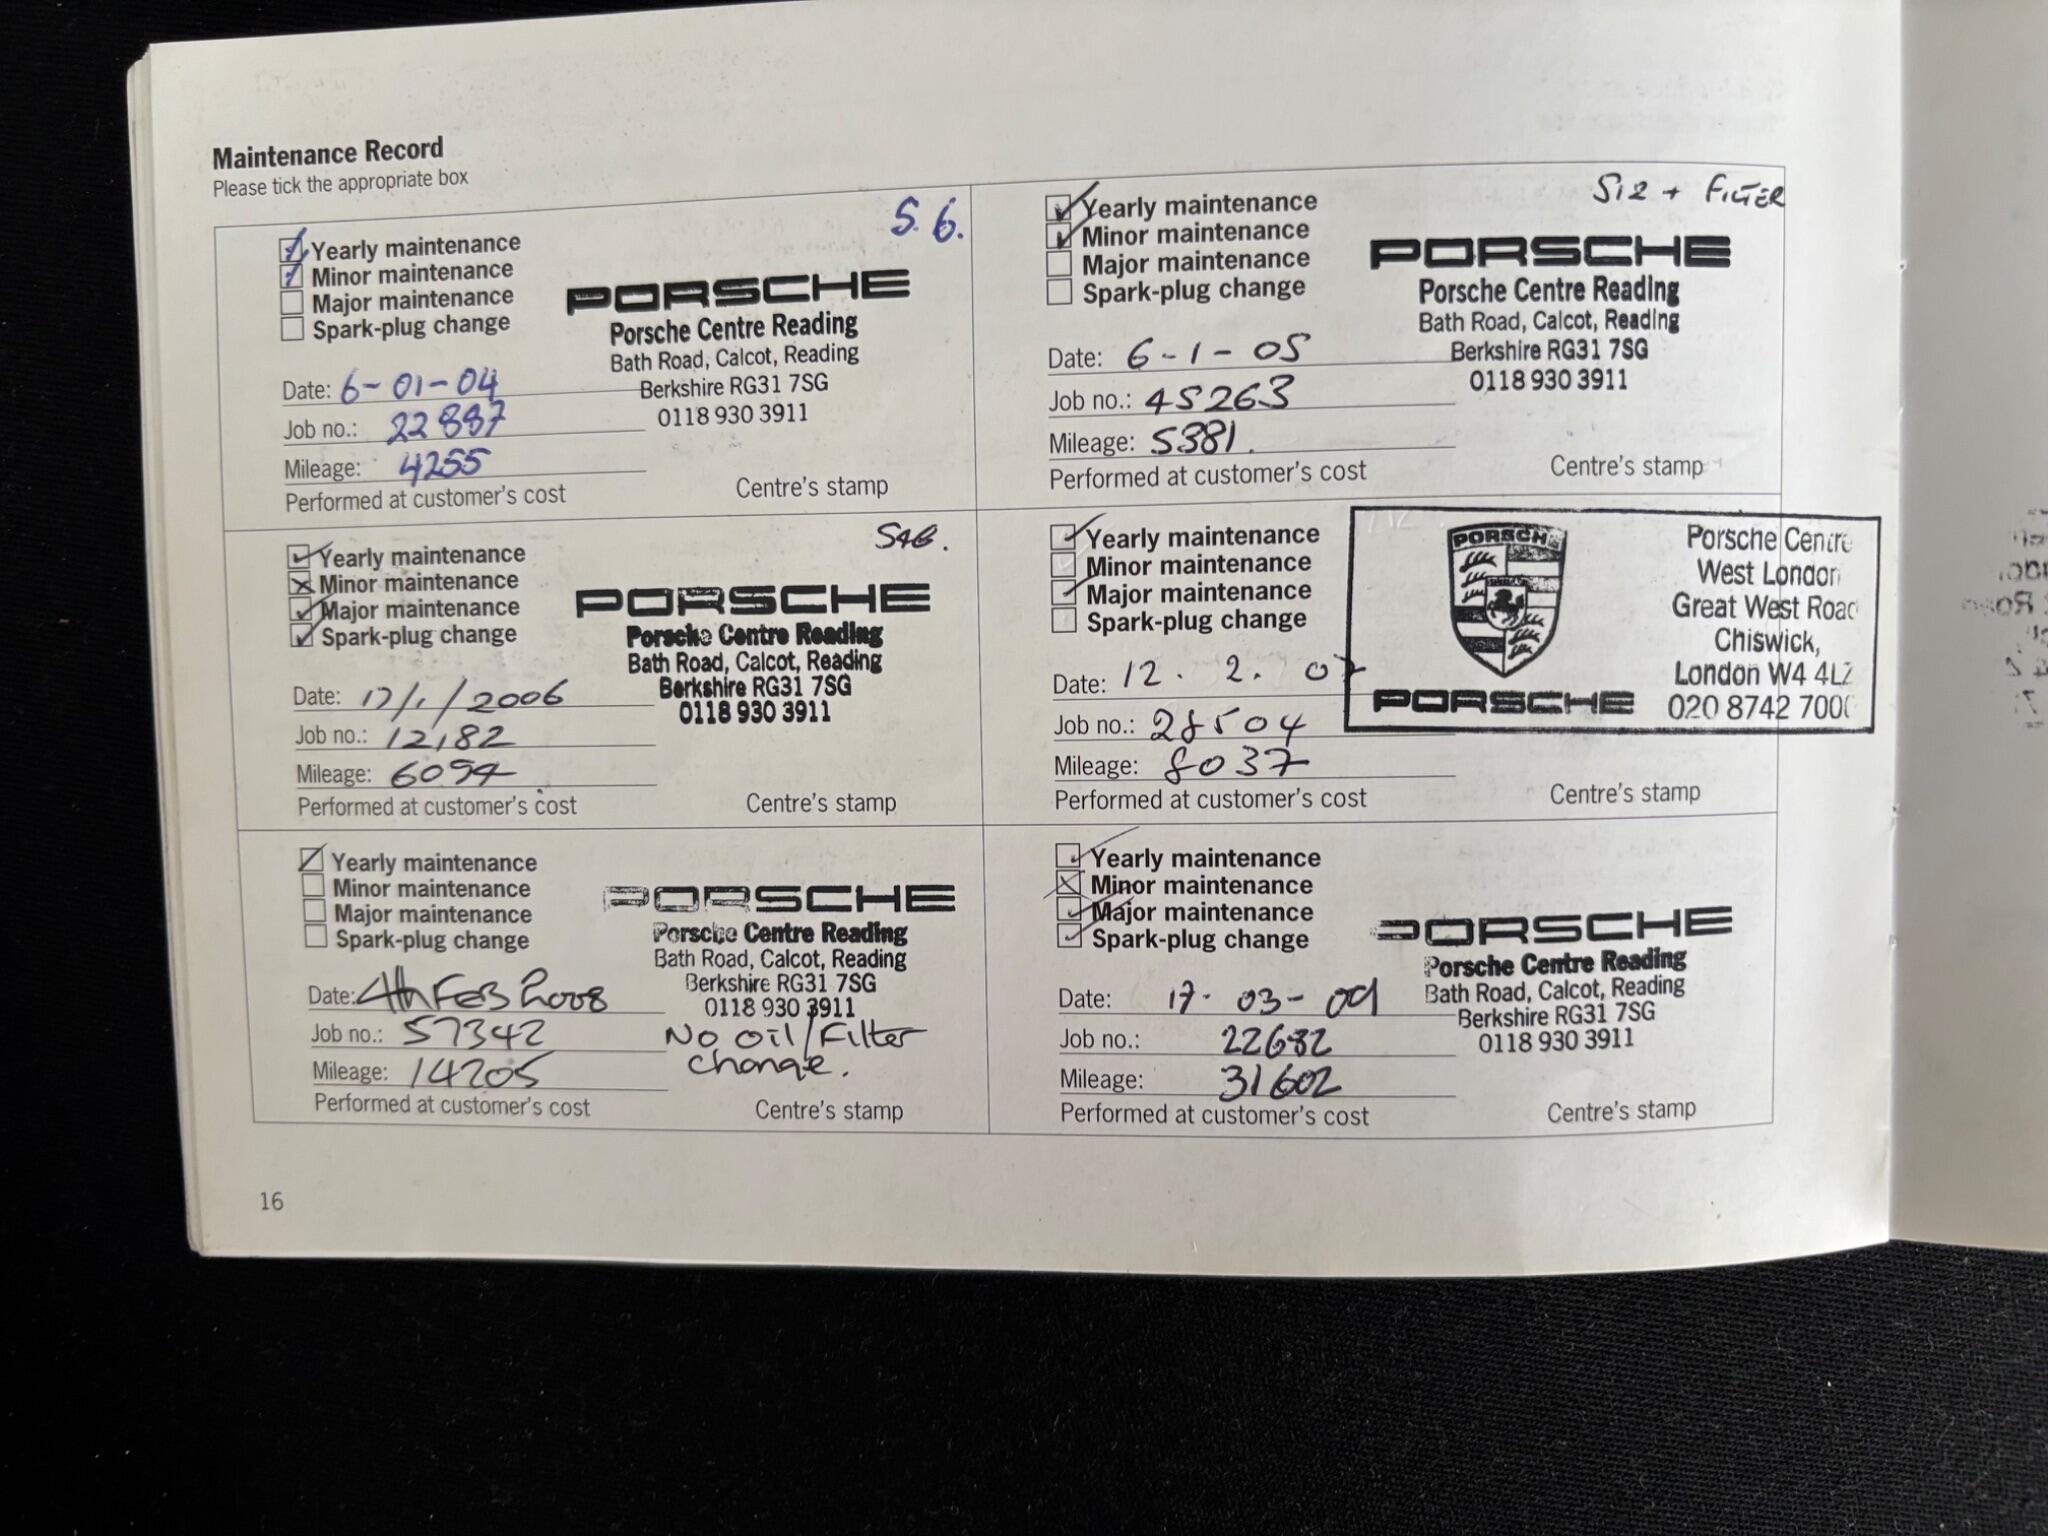 Maintenance Record
Please tick the appropriate box
S. 6.
Yearly maintenance
Minor maintenance
Major maintenance
Spark-plug change
PORSCHE
Porsche Centre Reading
Bath Road, Calcot, Reading
Berkshire RG31 7SG
0118 930 3911
Date: 6-01-04
Job no.: 22887
Mileage: 4255
Performed at customer's cost
Centre's stamp
S12 + FILTER
Yearly maintenance
Minor maintenance
Major maintenance
Spark-plug change
PORSCHE
Porsche Centre Reading
Bath Road, Calcot, Reading
Berkshire RG31 7SG
0118 930 3911
Date: 6-1-05
Job no.: 45263
Mileage: 5381.
Performed at customer's cost
Centre's stamp
Yearly maintenance
Minor maintenance
Major maintenance
Spark-plug change
PORSCHE
Porsche Centre Reading
Bath Road, Calcot, Reading
Berkshire RG31 7SG
0118 930 3911
Date: 17/1/2006
Job no.: 12182
Mileage: 6094
Performed at customer's cost
Centre's stamp
Yearly maintenance
Minor maintenance
Major maintenance
Spark-plug change
PORSCHE
PORSCHE
Porsche Centre
West London
Great West Road
Chiswick,
London W4 4LZ
020 8742 7000
Date: 12. 2. 07
Job no.: 28504
Mileage: 8037
Performed at customer's cost
Centre's stamp
Yearly maintenance
Minor maintenance
Major maintenance
Spark-plug change
PORSCHE
Porsche Centre Reading
Bath Road, Calcot, Reading
Berkshire RG31 7SG
0118 930 3911
No oil/Filter
change.
Date: 4th FEB 2008
Job no.: 57342
Mileage: 14205
Performed at customer's cost
Centre's stamp
Yearly maintenance
Minor maintenance
Major maintenance
Spark-plug change
PORSCHE
Porsche Centre Reading
Bath Road, Calcot, Reading
Berkshire RG31 7SG
0118 930 3911
Date: 17-03-09
Job no.: 22682
Mileage: 31602
Performed at customer's cost
Centre's stamp
16